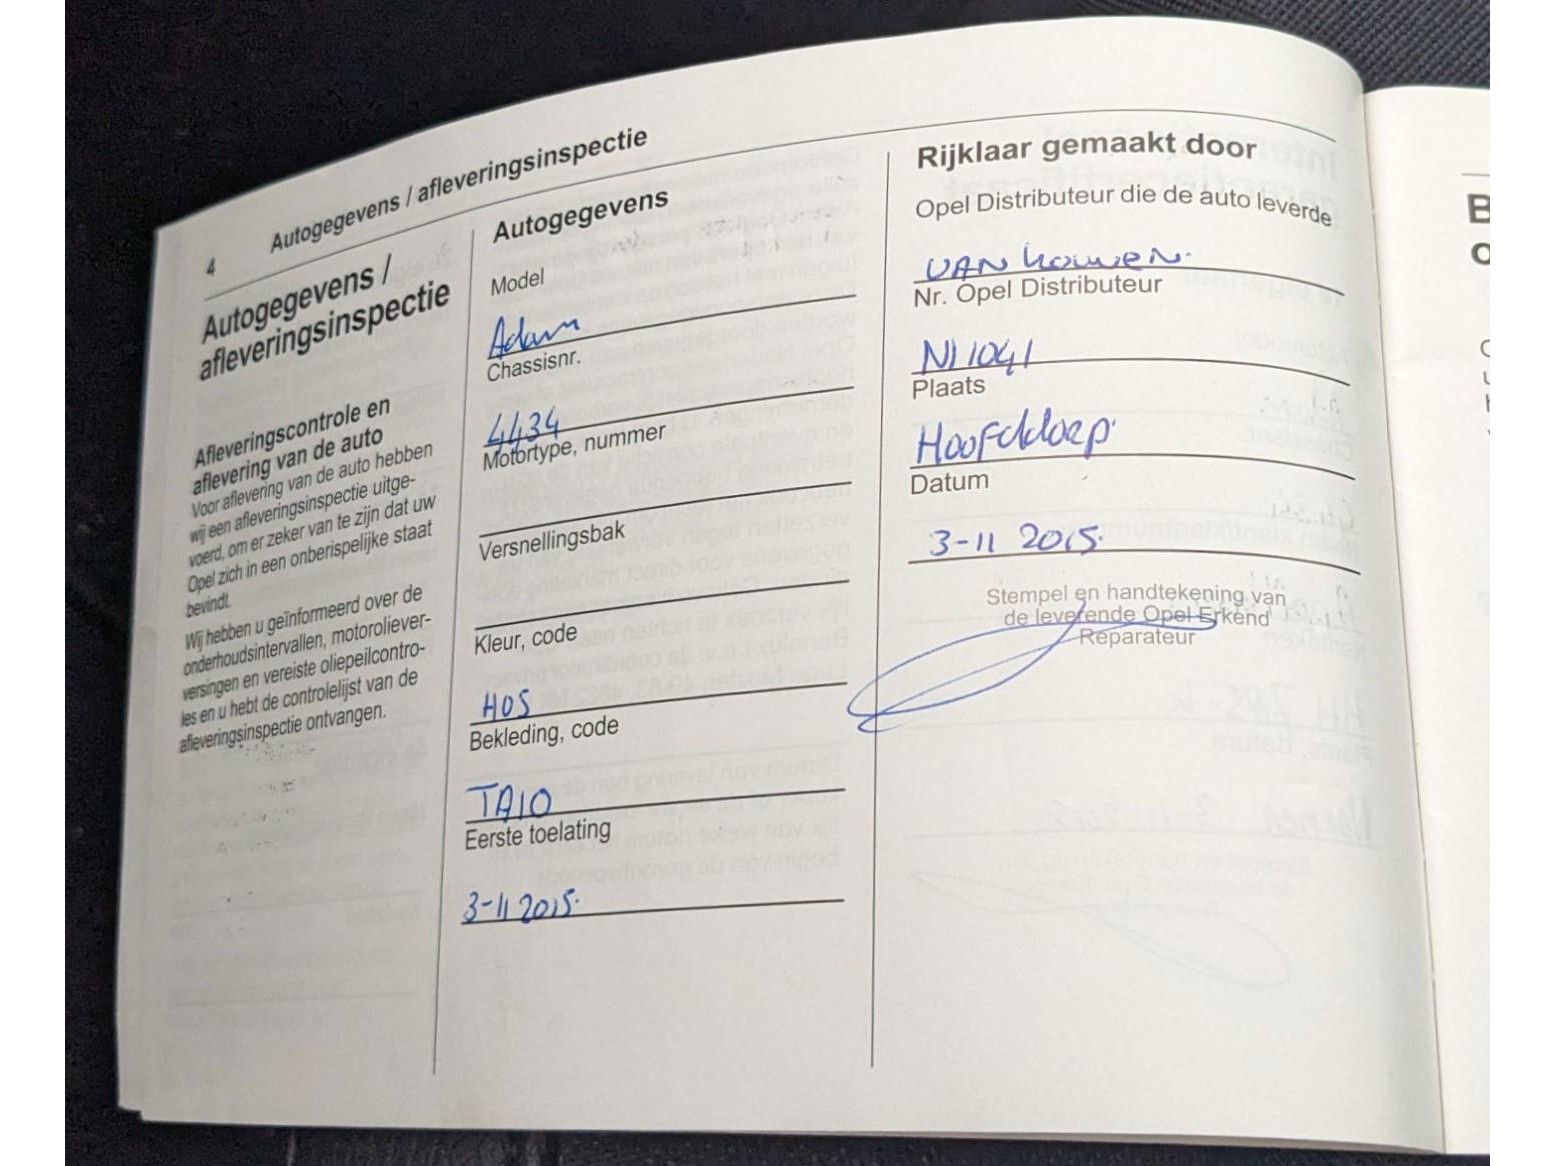 4
Autogegevens / afleveringsinspectie
Autogegevens /
afleveringsinspectie
Afleveringscontrole en
aflevering van de auto
Voor aflevering van de auto hebben
wij een afleveringsinspectie uitge-
voerd, om er zeker van te zijn dat uw
Opel zich in een onberispelijke staat
bevindt.
Wij hebben u geïnformeerd over de
onderhoudsintervallen, motoroliever-
versingen en vereiste oliepeilcontro-
les en u hebt de controlelijst van de
afleveringsinspectie ontvangen.
Autogegevens
Model
Adam
Chassisnr.
4434
Motortype, nummer
Versnellingsbak
Kleur, code
H05
Bekleding, code
TA10
Eerste toelating
3-11 2015.
Rijklaar gemaakt door
Opel Distributeur die de auto leverde
VAN Kouwen.
Nr. Opel Distributeur
Nl 1041
Plaats
Hoofddorp.
Datum
3-11 2015.
Stempel en handtekening van
de leverende Opel Erkend
Reparateur
B